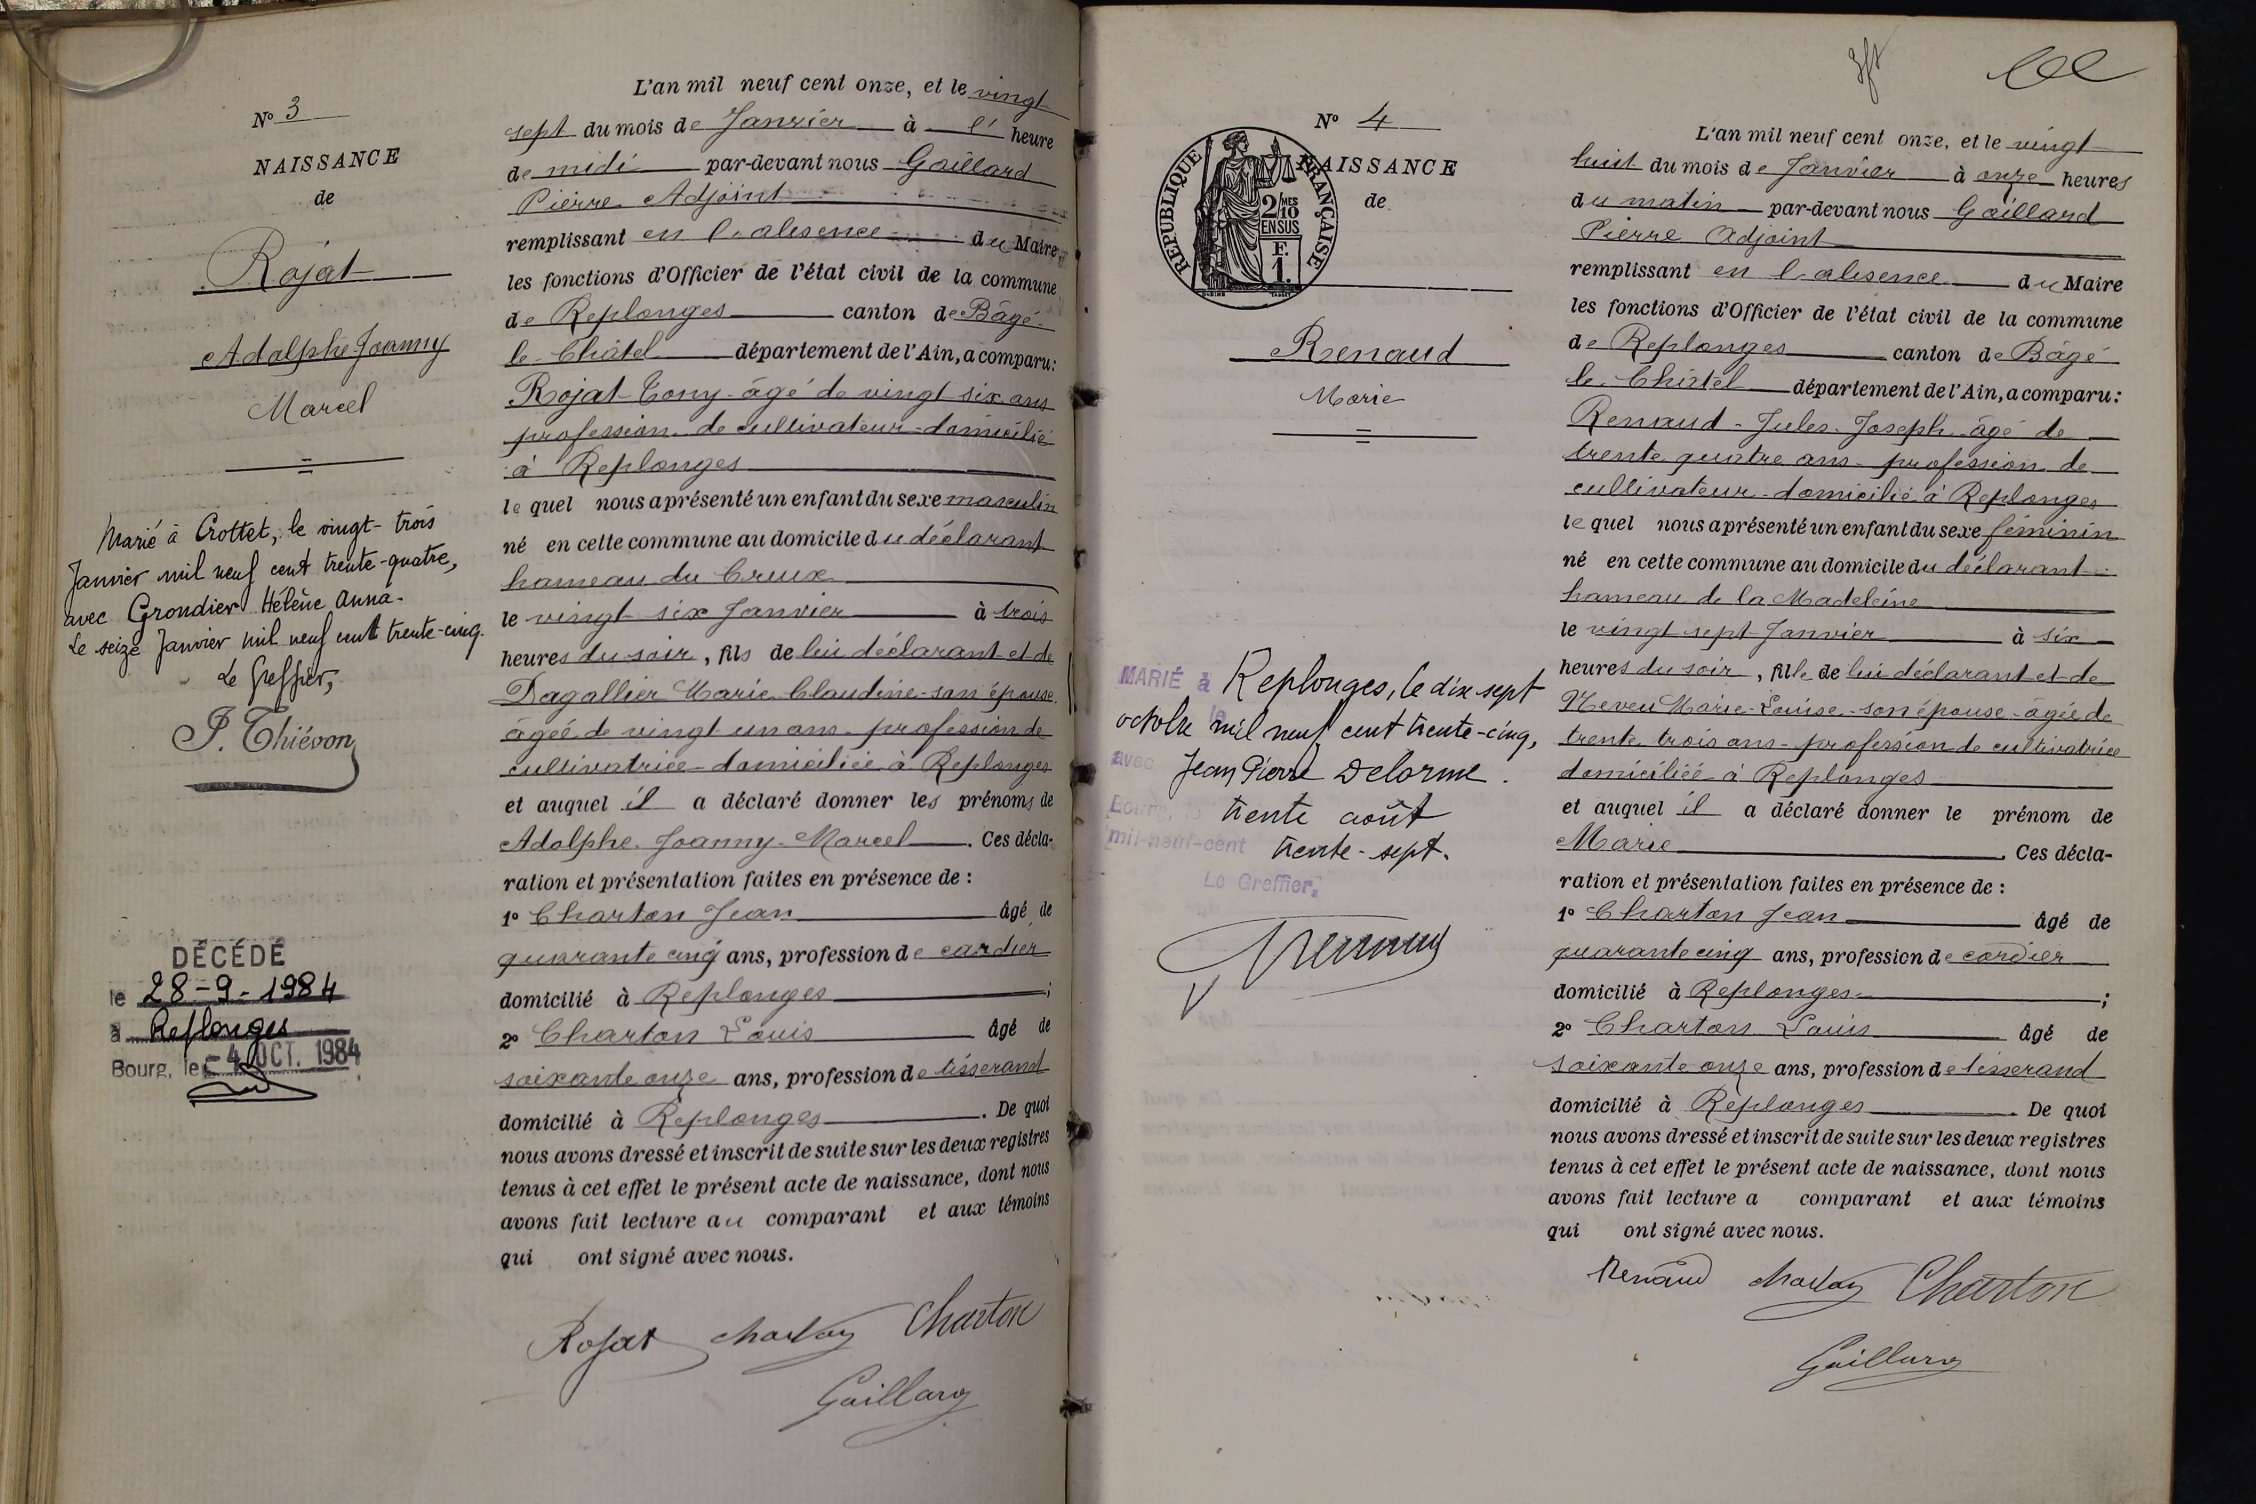 N° 3
NAISSANCE
de
Rojat
Adolphe Joanny
Marcel
Marié à Crottet, le vingt-trois
Janvier mil neuf cent trente-quatre,
avec Grondier Hélène Anna.
Le seize Janvier mil neuf cent trente-cinq.
Le Greffier,
P. Thiévon
DÉCÉDÉ
le 28-9-1984
à Replonges
Bourg, le - 4 OCT. 1984
L'an mil neuf cent onze, et le vingt
sept du mois de Janvier à l' heure
de midi par-devant nous Gaillard
Pierre Adjoint
remplissant en l'absence du Maire
les fonctions d'Officier de l'état civil de la commune
de Replonges canton de Bâgé-
le-Châtel département de l'Ain, a comparu:
Rojat Tony âgé de vingt six ans
profession de cultivateur domicilié
à Replonges
lequel nous a présenté un enfant du sexe masculin
né en cette commune au domicile du déclarant
hameau du Creux
le vingt six Janvier à trois
heures du soir, fils de lui déclarant et de
Dagallier Marie Claudine son épouse
âgée de vingt un ans profession de
cultivatrice domiciliée à Replonges
et auquel il a déclaré donner les prénoms de
Adolphe Joanny Marcel. Ces décla-
ration et présentation faites en présence de :
1° Charton Jean âgé de
quarante cinq ans, profession de cordier
domicilié à Replonges ;
2° Charton Louis âgé de
soixante onze ans, profession de tisserand
domicilié à Replonges. De quoi
nous avons dressé et inscrit de suite sur les deux registres
tenus à cet effet le présent acte de naissance, dont nous
avons fait lecture au comparant et aux témoins
qui ont signé avec nous.
Rojat Charton Charton
Gaillard
N° 4
NAISSANCE
de
RÉPUBLIQUE FRANÇAISE
2/10 MES
EN SUS
F.
1.
Renaud
Marie
MARIÉ à Replonges, le dix sept
octobre mil neuf cent trente-cinq,
avec Jean Pierre Delorme.
Bourg, le trente août
mil-neuf-cent trente-sept.
Le Greffier,
L'an mil neuf cent onze, et le vingt
huit du mois de Janvier à onze heures
du matin par-devant nous Gaillard
Pierre Adjoint
remplissant en l'absence du Maire
les fonctions d'Officier de l'état civil de la commune
de Replonges canton de Bâgé
le-Châtel département de l'Ain, a comparu:
Renaud Jules Joseph âgé de
trente quatre ans profession de
cultivateur domicilié à Replonges
lequel nous a présenté un enfant du sexe féminin
né en cette commune au domicile du déclarant
hameau de la Madeleine
le vingt sept Janvier à six
heures du soir, fille de lui déclarant et de
Neveu Marie-Louise son épouse âgée de
trente trois ans profession de cultivatrice
domiciliée à Replonges
et auquel il a déclaré donner le prénom de
Marie. Ces décla-
ration et présentation faites en présence de :
1° Charton Jean âgé de
quarante cinq ans, profession de cordier
domicilié à Replonges ;
2° Charton Louis âgé de
soixante onze ans, profession de tisserand
domicilié à Replonges. De quoi
nous avons dressé et inscrit de suite sur les deux registres
tenus à cet effet le présent acte de naissance, dont nous
avons fait lecture a comparant et aux témoins
qui ont signé avec nous.
Renaud Charton Charton
Gaillard